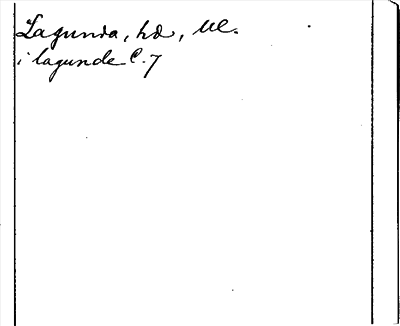 Lagunda, hd, Ul.
i lagunde C. 7